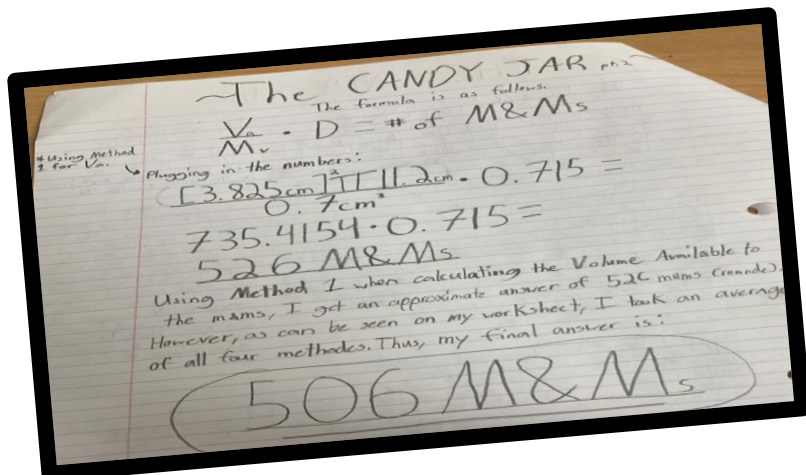 ~The CANDY JAR pt.2~
The formula is as follows.
Va/Mv · D = # of M&Ms
*Using Method
1 for Va.
Plugging in the numbers:
[3.825cm]²π[11.2cm · 0.715 =
0.7cm³
735.4154 · 0.715 =
526 M&Ms
Using Method 1 when calculating the Volume Available to
the m&ms, I get an approximate answer of 526 m&ms
However, as can be seen on my worksheet, I took an average
of all four methodes. Thus, my final answer is:
506 M&Ms